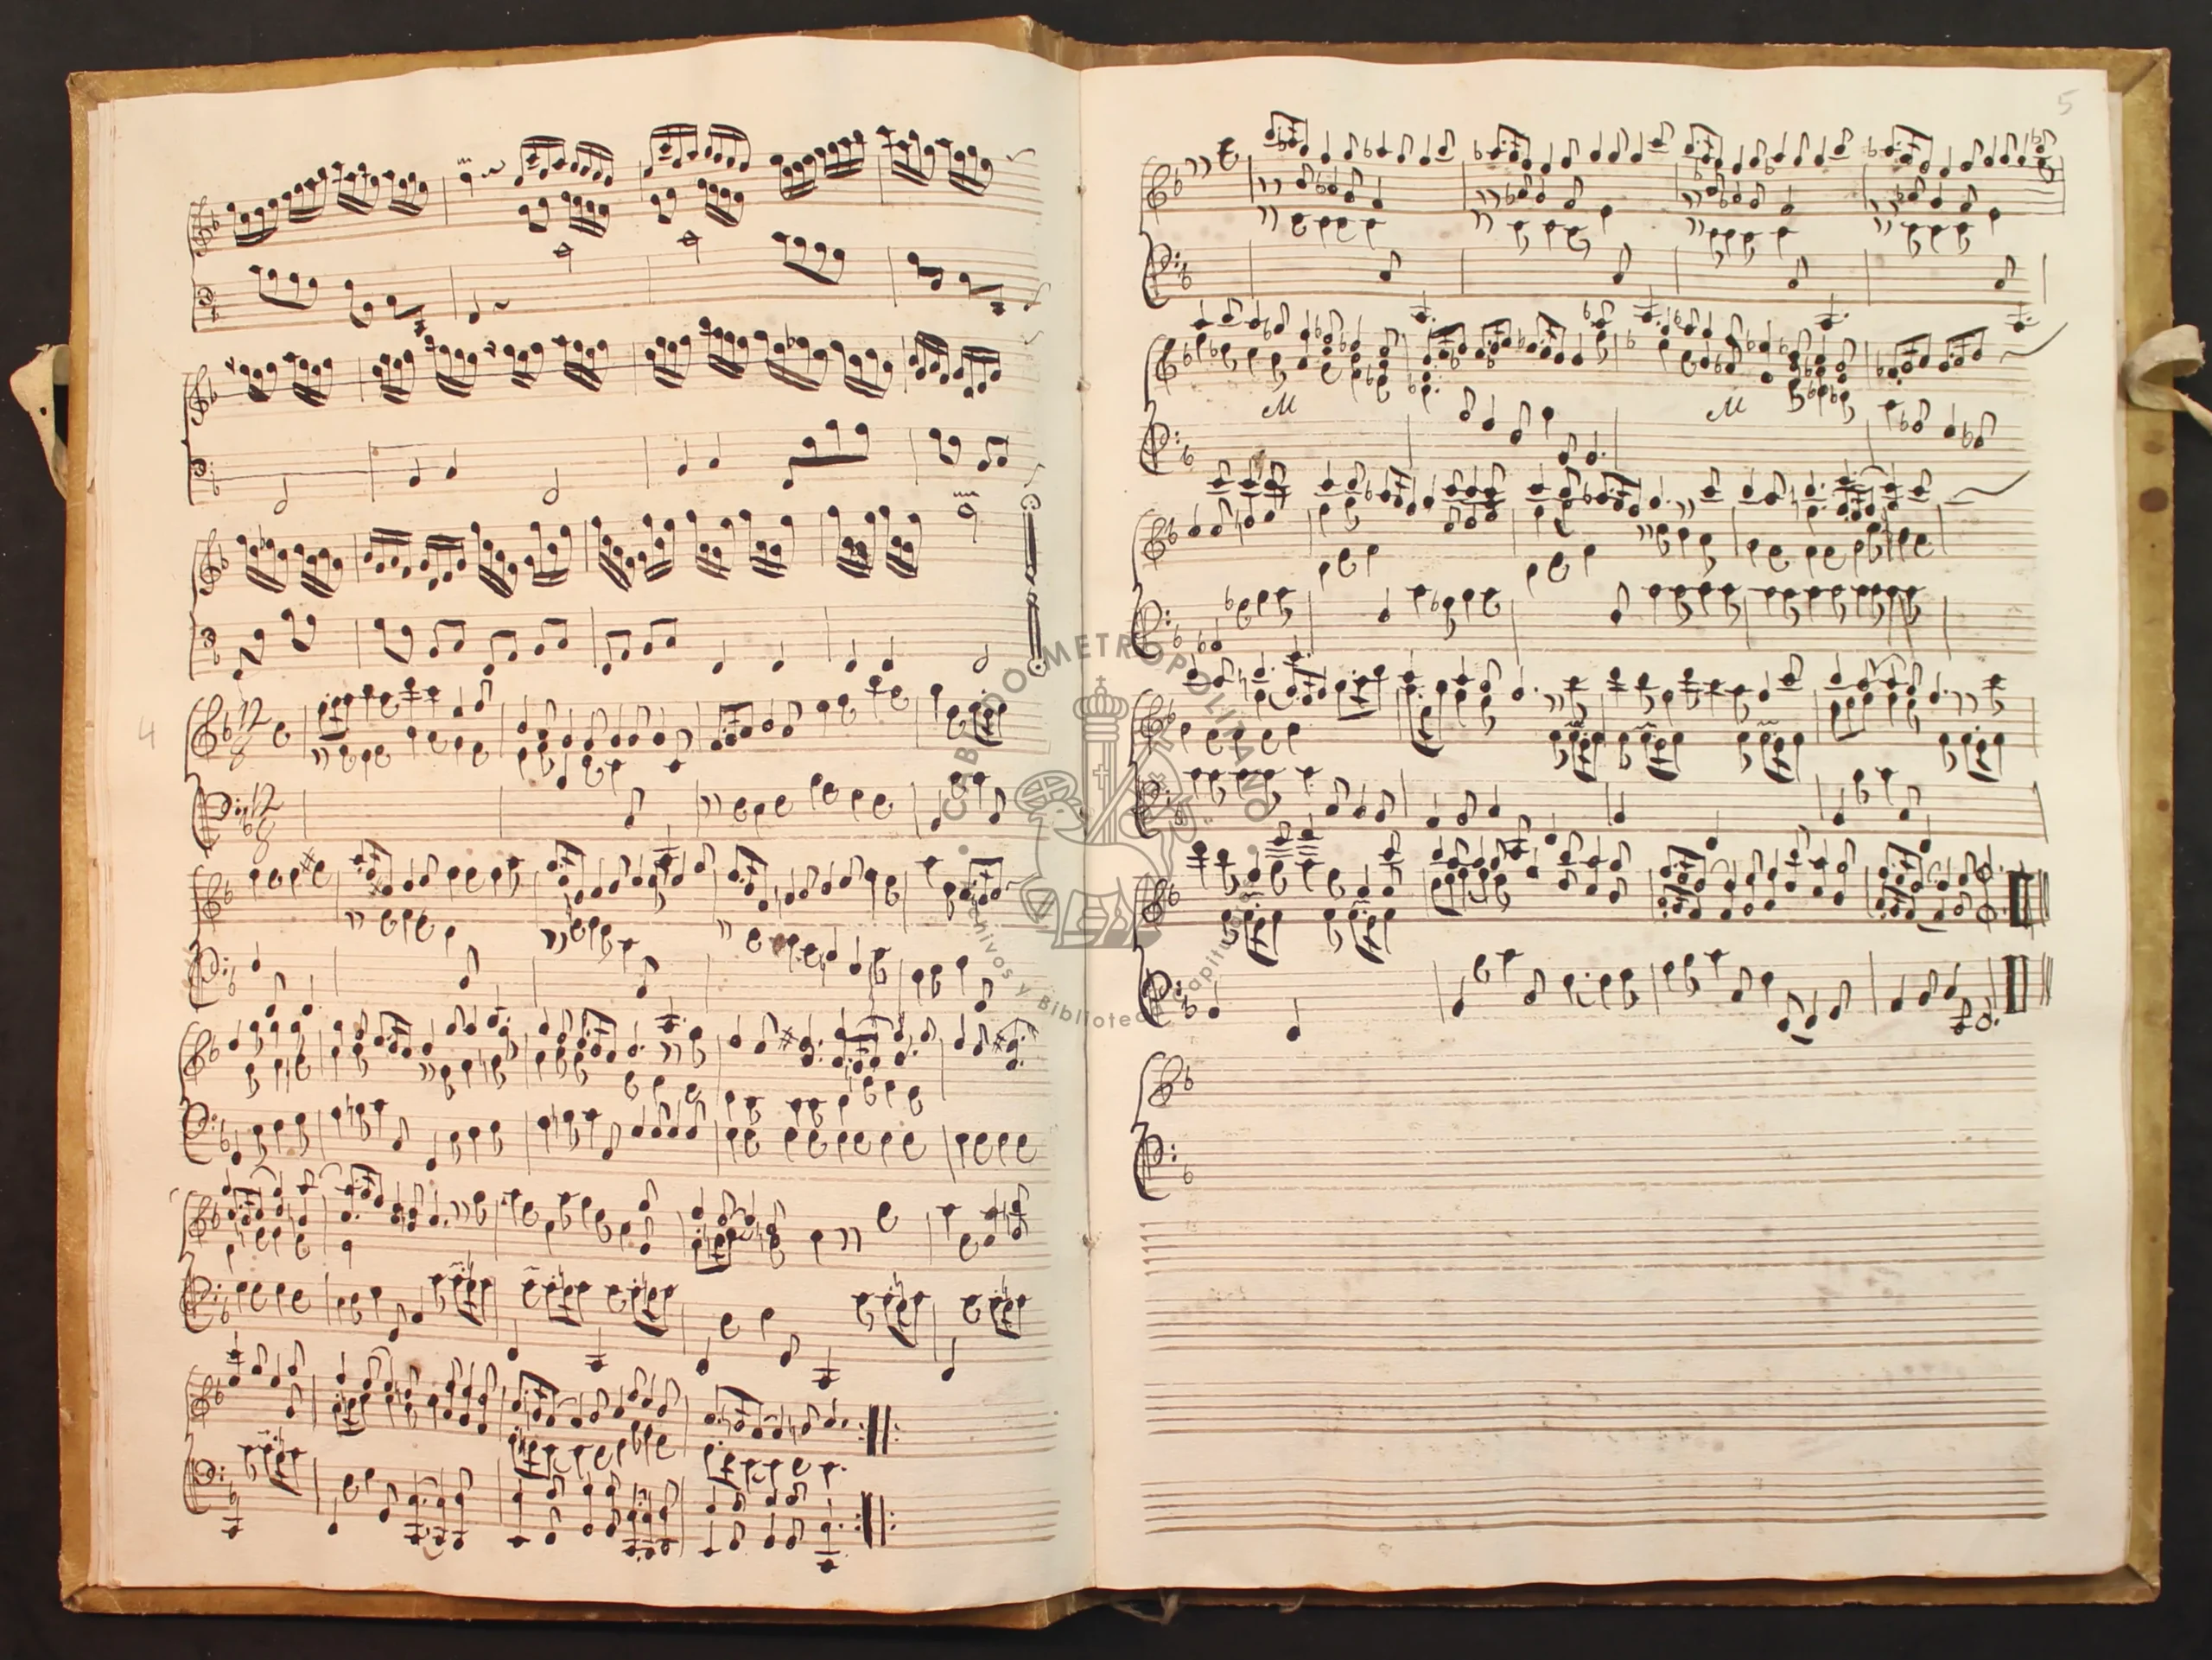 5
4
12
8
12
8
M
M
CABILDO METROPOLITANO
Archivos y Biblioteca Capitular